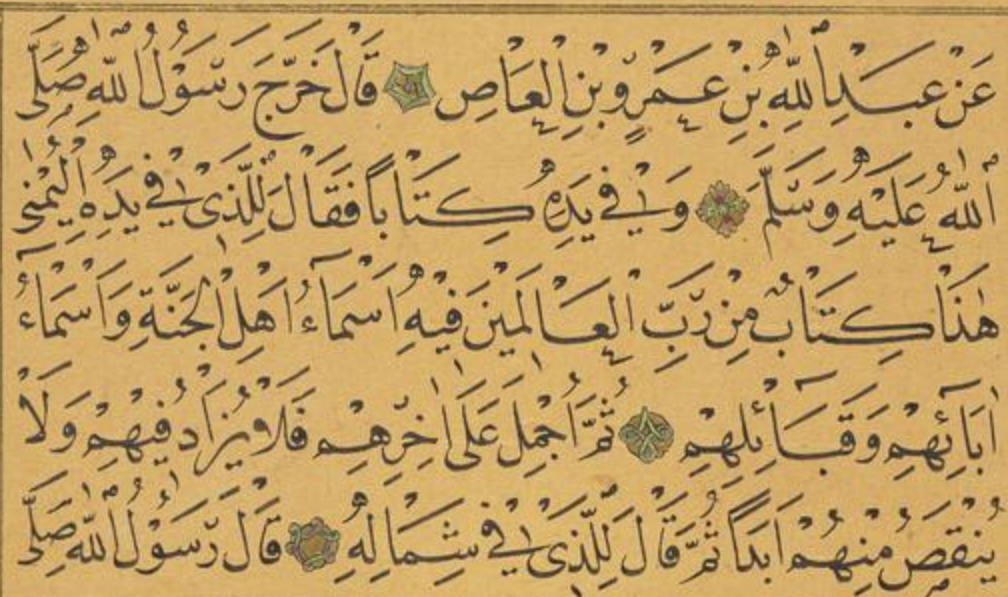 عَنْ عَبْدِ اللّٰهِ بْنِ عَمْرٍو بْنِ الْعَاصِ قَالَ خَرَجَ رَسُولُ اللّٰهِ صَلَّى
اللّٰهُ عَلَيْهِ وَسَلَّمَ وَفِي يَدِهِ كِتَابًا فَقَالَ لِلَّذِي فِي يَدِهِ الْيُمْنٰى
هٰذَا كِتَابٌ مِنْ رَبِّ الْعَالَمِينَ فِيهِ اَسْمَاءُ اَهْلِ الْجَنَّةِ وَاَسْمَاءُ
اٰبَآئِهِمْ وَقَبَآئِلِهِمْ ثُمَّ اُجْمِلَ عَلٰى اٰخِرِهِمْ فَلَا يُزَادُ فِيهِمْ وَلَا
يُنْقَصُ مِنْهُمْ اَبَدًا ثُمَّ قَالَ لِلَّذِي فِي شِمَالِهِ قَالَ رَسُولُ اللّٰهِ صَلَّى